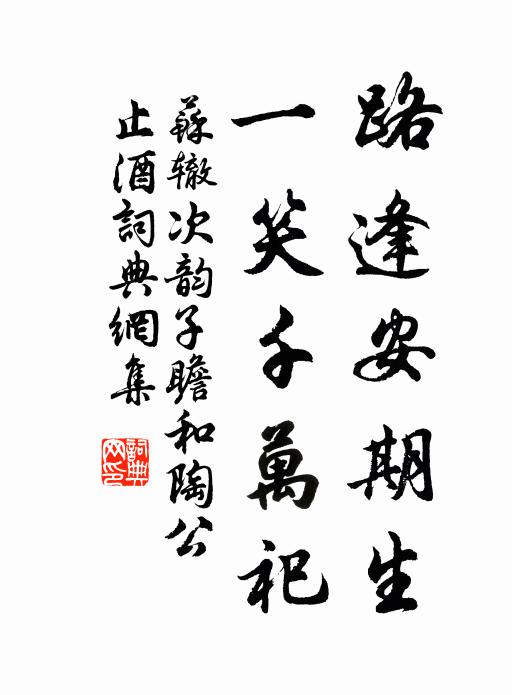 路逢安期生
一笑千萬祀
蘇辙次韵子瞻和陶公
止酒詞典網集
詞典
网印